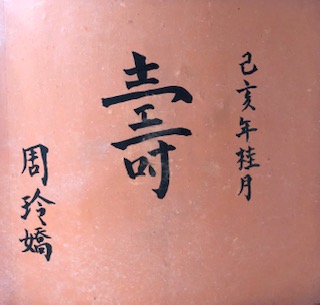 己亥年桂月
壽
周玲嬌